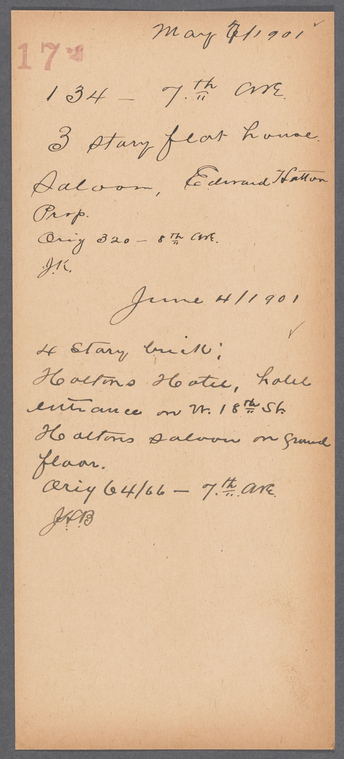 May 7/1901
17
134 — 7.th Ave.
3 story flat house.
Saloon, Edward Hatton
Prop.
Orig 320 — 8th Ave.
J.K.
June 4/1901
4 story brick;
Hattons Hotel, hotel
entrance on W. 18th St.
Hattons saloon on ground
floor.
Orig 64/66 — 7.th Ave.